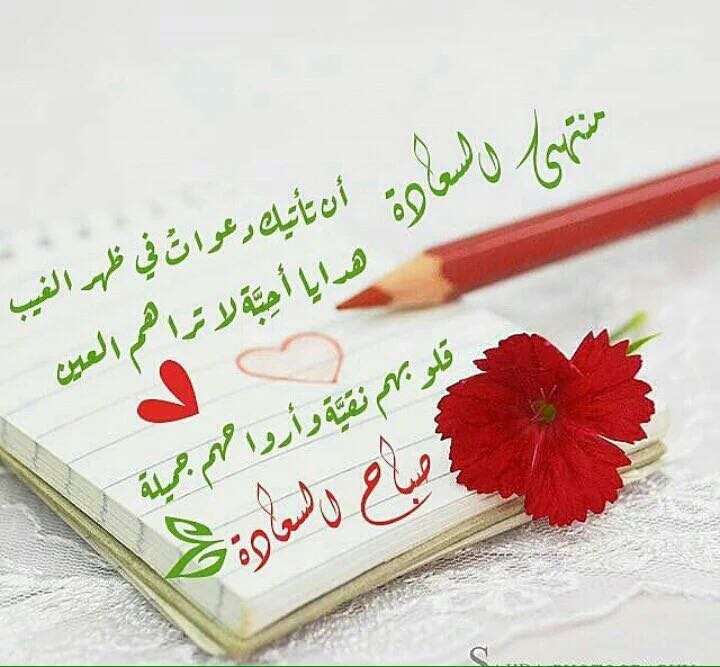 منتهى السعادة
أن تأتيك دعواتُ في ظهر الغيب
هدايا أحِبَّة لا تراهم العين
قلوبهم نقيَّة وأرواحهم جميلة
صباح السعادة